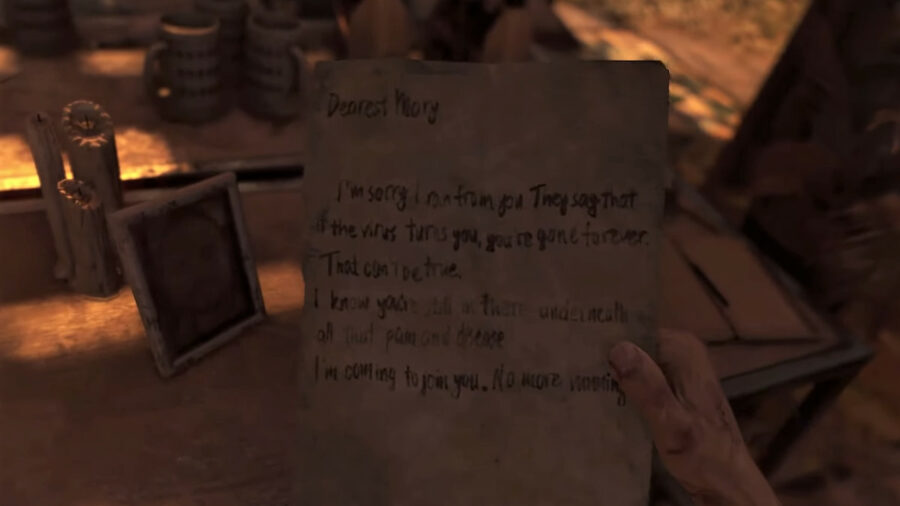 Dearest Mary
I'm sorry I ran from you They say that
if the virus turns you, you're gone forever.
That can't be true.
I know you're still in there underneath
all that pain and disease
I'm coming to join you. No more running